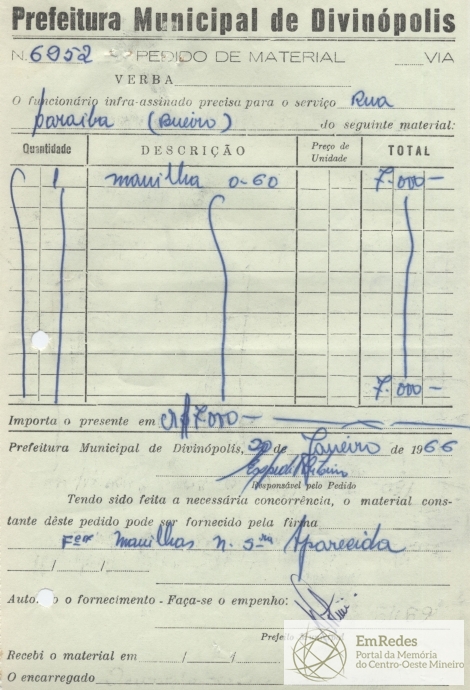 Prefeitura Municipal de Divinópolis
N. 6952 PEDIDO DE MATERIAL VIA
VERBA
O funcionário infra-assinado precisa para o serviço Rua
paraiba (Bueiro) do seguinte material:
Quantidade DESCRIÇÃO Preço de Unidade TOTAL
1 manilha 0-60 7.000-
7.000-
Importa o presente em Cr$ 7.000-
Prefeitura Municipal de Divinópolis, 20 de Janeiro de 1966
Responsável pelo Pedido
Tendo sido feita a necessária concorrência, o material cons-
tante dêste pedido pode ser fornecido pela firma
Manilhas N. Sra Aparecida
/ /
o fornecimento - Faça-se o empenho:
Prefeito Municipal
Recebi o material em / /
O encarregado
EmRedes
Portal da Memória
do Centro-Oeste Mineiro